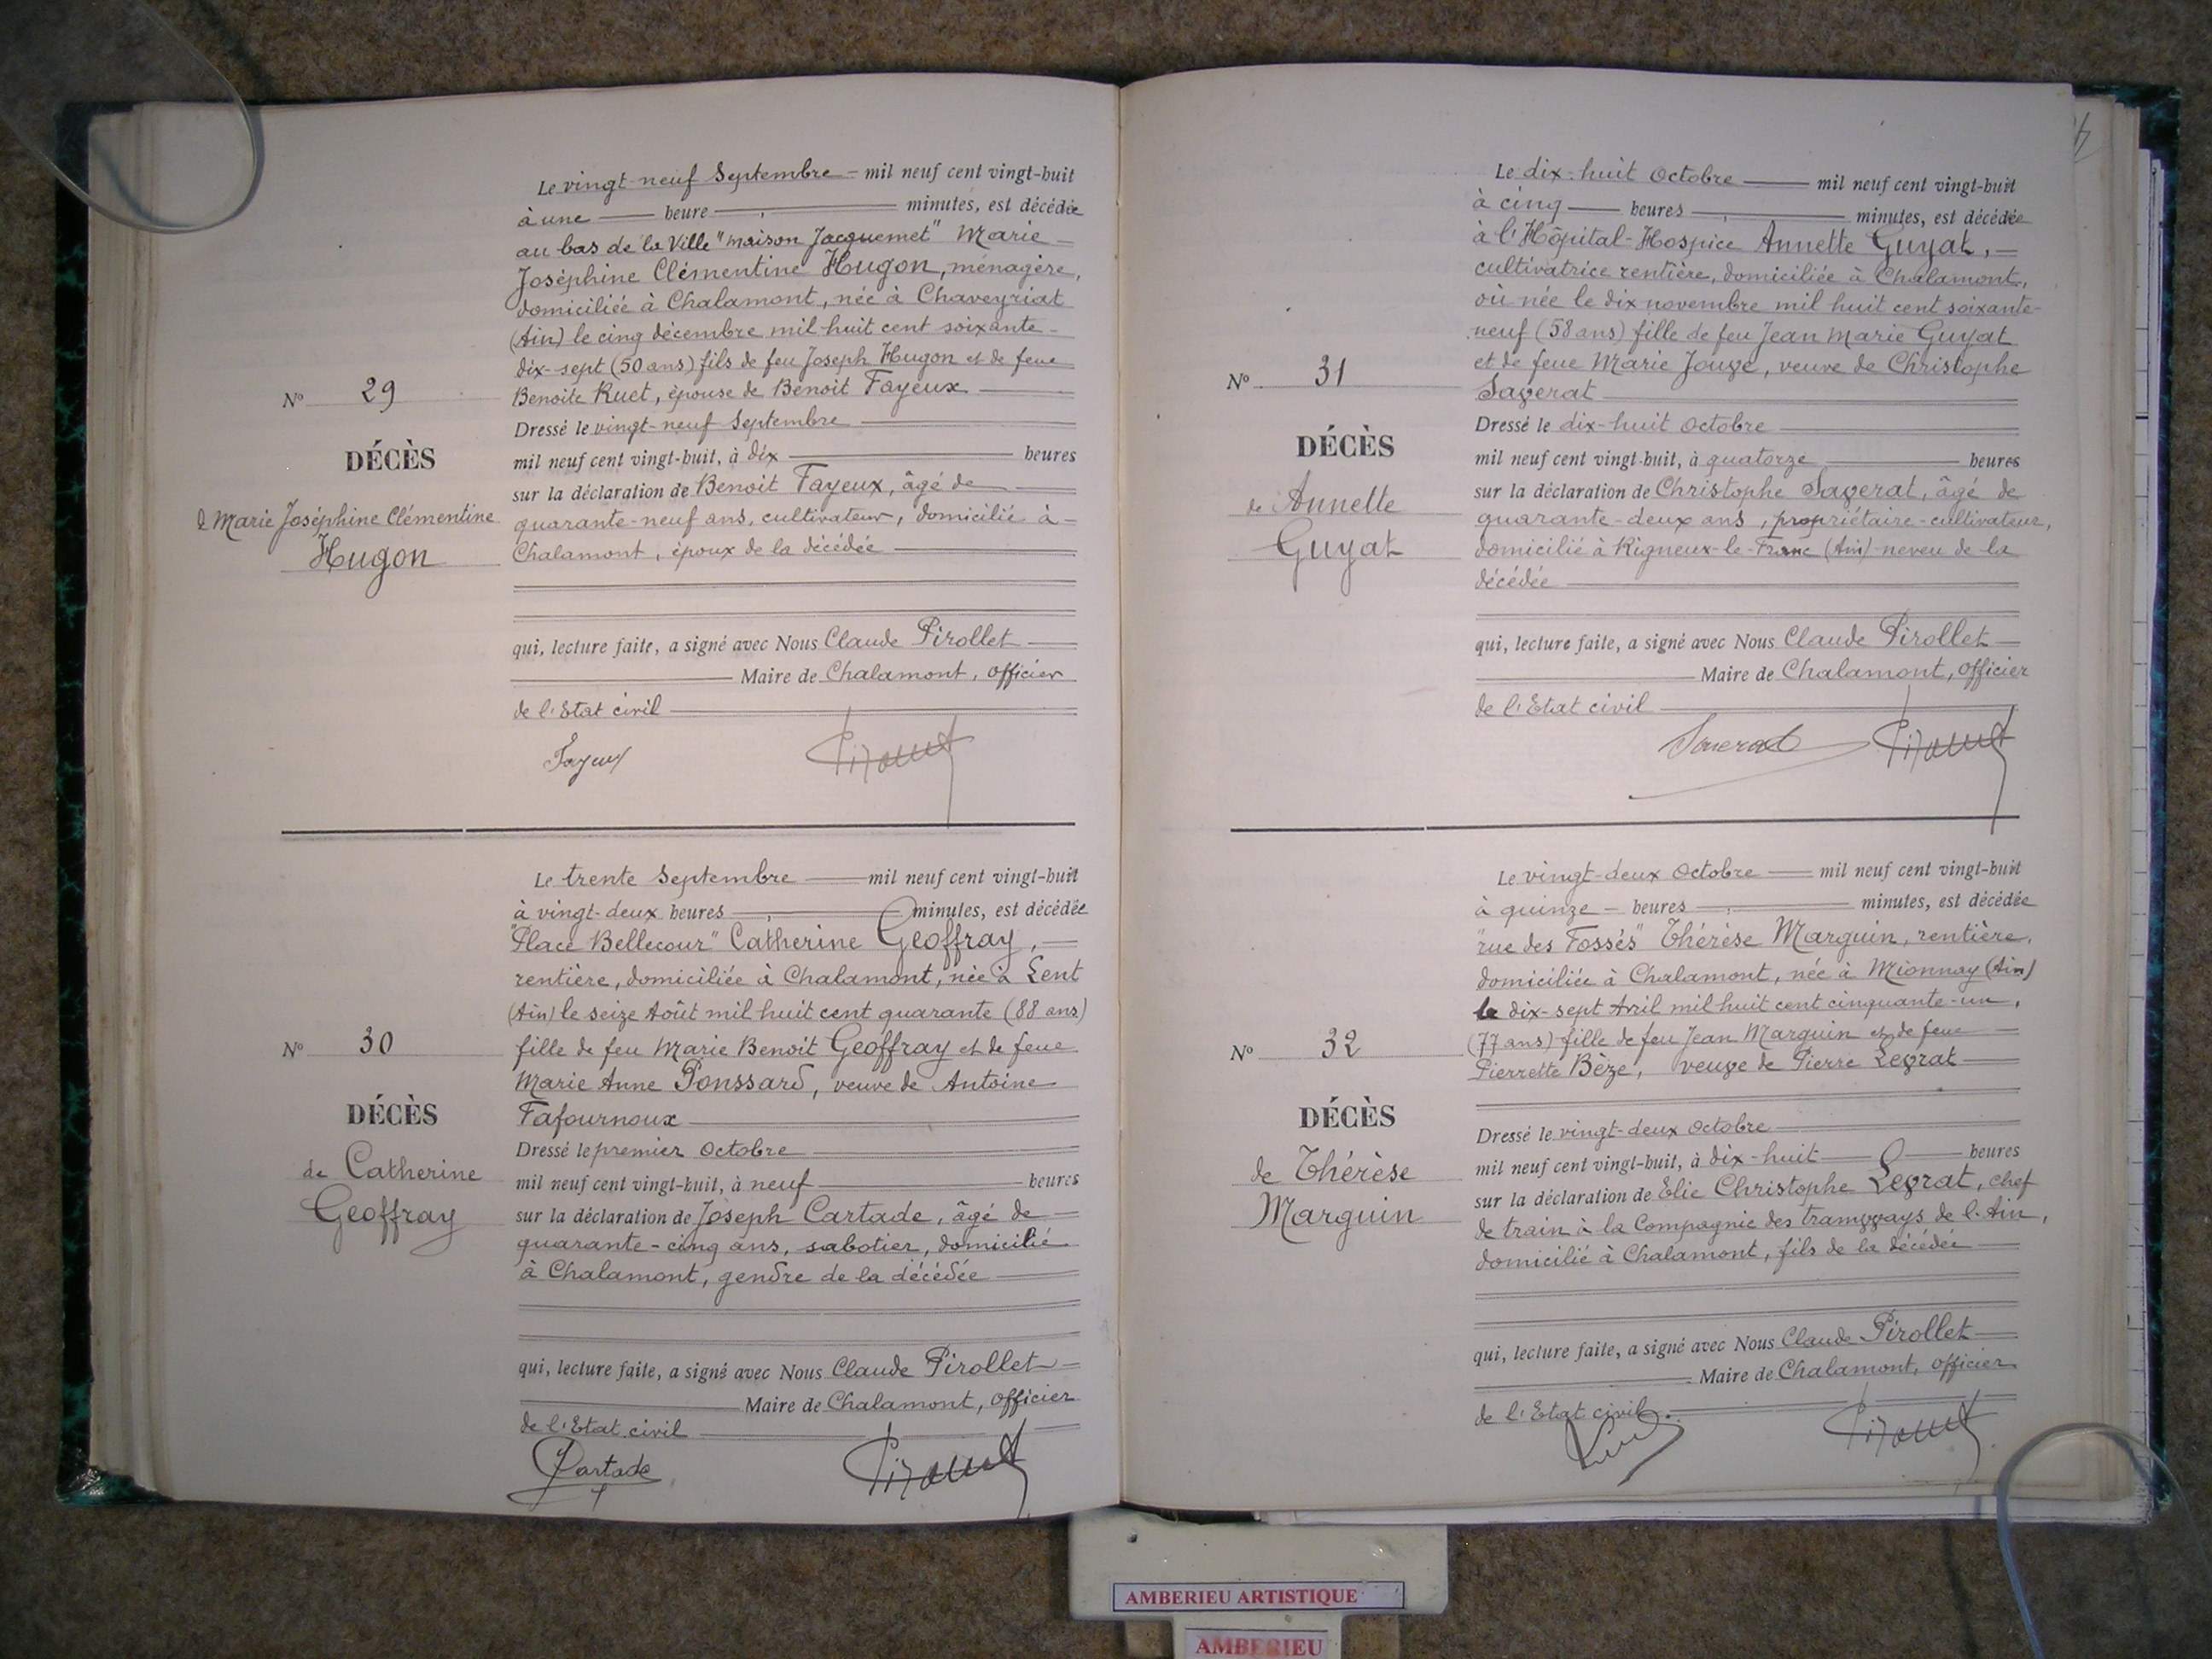 Le vingt-neuf Septembre - mil neuf cent vingt-huit
à une heure minutes, est décédée
au bas de la Ville "maison Jacquemet" Marie
Joséphine Clémentine Hugon, ménagère,
domiciliée à Chalamont, née à Chaveyriat
(Ain) le cinq décembre mil huit cent soixante-
dix-sept (50 ans) fils de feu Joseph Hugon et de feue
Benoite Ruet, épouse de Benoit Fayeux
Dressé le vingt-neuf Septembre
mil neuf cent vingt-huit, à dix heures
sur la déclaration de Benoit Fayeux, âgé de
quarante-neuf ans, cultivateur, domicilié à
Chalamont, époux de la décédée
qui, lecture faite, a signé avec Nous Claude Pirollet
Maire de Chalamont, officier
de l'Etat civil
Nº 29
DÉCÈS
Marie Joséphine Clémentine
Hugon
Le trente Septembre mil neuf cent vingt-huit
à vingt-deux heures minutes, est décédée
"Place Bellecour" Catherine Geoffray,
rentière, domiciliée à Chalamont, née à Lent
(Ain) le seize Août mil huit cent quarante (88 ans)
fille de feu Marie Benoit Geoffray et de feue
Marie Anne Ponssard, veuve de Antoine
Fafournoux
Dressé le premier Octobre
mil neuf cent vingt-huit, à neuf heures
sur la déclaration de Joseph Cartade, âgé de
quarante-cinq ans, sabotier, domicilié
à Chalamont, gendre de la décédée
qui, lecture faite, a signé avec Nous Claude Pirollet
Maire de Chalamont, officier
de l'Etat civil
Cartade
Nº 30
DÉCÈS
de Catherine
Geoffray
Le dix-huit Octobre mil neuf cent vingt-huit
à cinq heures minutes, est décédée
à l'Hôpital-Hospice Annette Guyat,
cultivatrice rentière, domiciliée à Chalamont,
où née le dix novembre mil huit cent soixante-
neuf (58 ans) fille de feu Jean Marie Guyat
et de feue Marie Jouve, veuve de Christophe
Saverat
Dressé le dix-huit Octobre
mil neuf cent vingt-huit, à quatorze heures
sur la déclaration de Christophe Saverat, âgé de
quarante-deux ans, propriétaire-cultivateur,
domicilié à Rigneux-le-Franc (Ain) neveu de la
décédée
qui, lecture faite, a signé avec Nous Claude Pirollet
Maire de Chalamont, officier
de l'Etat civil
Nº 31
DÉCÈS
de Annette
Guyat
Le vingt-deux Octobre mil neuf cent vingt-huit
à quinze - heures minutes, est décédée
"rue des Fossés" Thérèse Marguin, rentière,
domiciliée à Chalamont, née à Mionnay (Ain)
le dix-sept Avril mil huit cent cinquante-un,
(77 ans) fille de feu Jean Marguin et de feue
Pierrette Bèze, veuve de Pierre Levrat
Dressé le vingt-deux Octobre
mil neuf cent vingt-huit, à dix-huit heures
sur la déclaration de Elie Christophe Levrat, chef
de train à la Compagnie des tramways de l'Ain,
domicilié à Chalamont, fils de la décédée
qui, lecture faite, a signé avec Nous Claude Pirollet
Maire de Chalamont, officier
de l'Etat civil.
Nº 32
DÉCÈS
de Thérèse
Marguin
AMBERIEU ARTISTIQUE
AMBERIEU